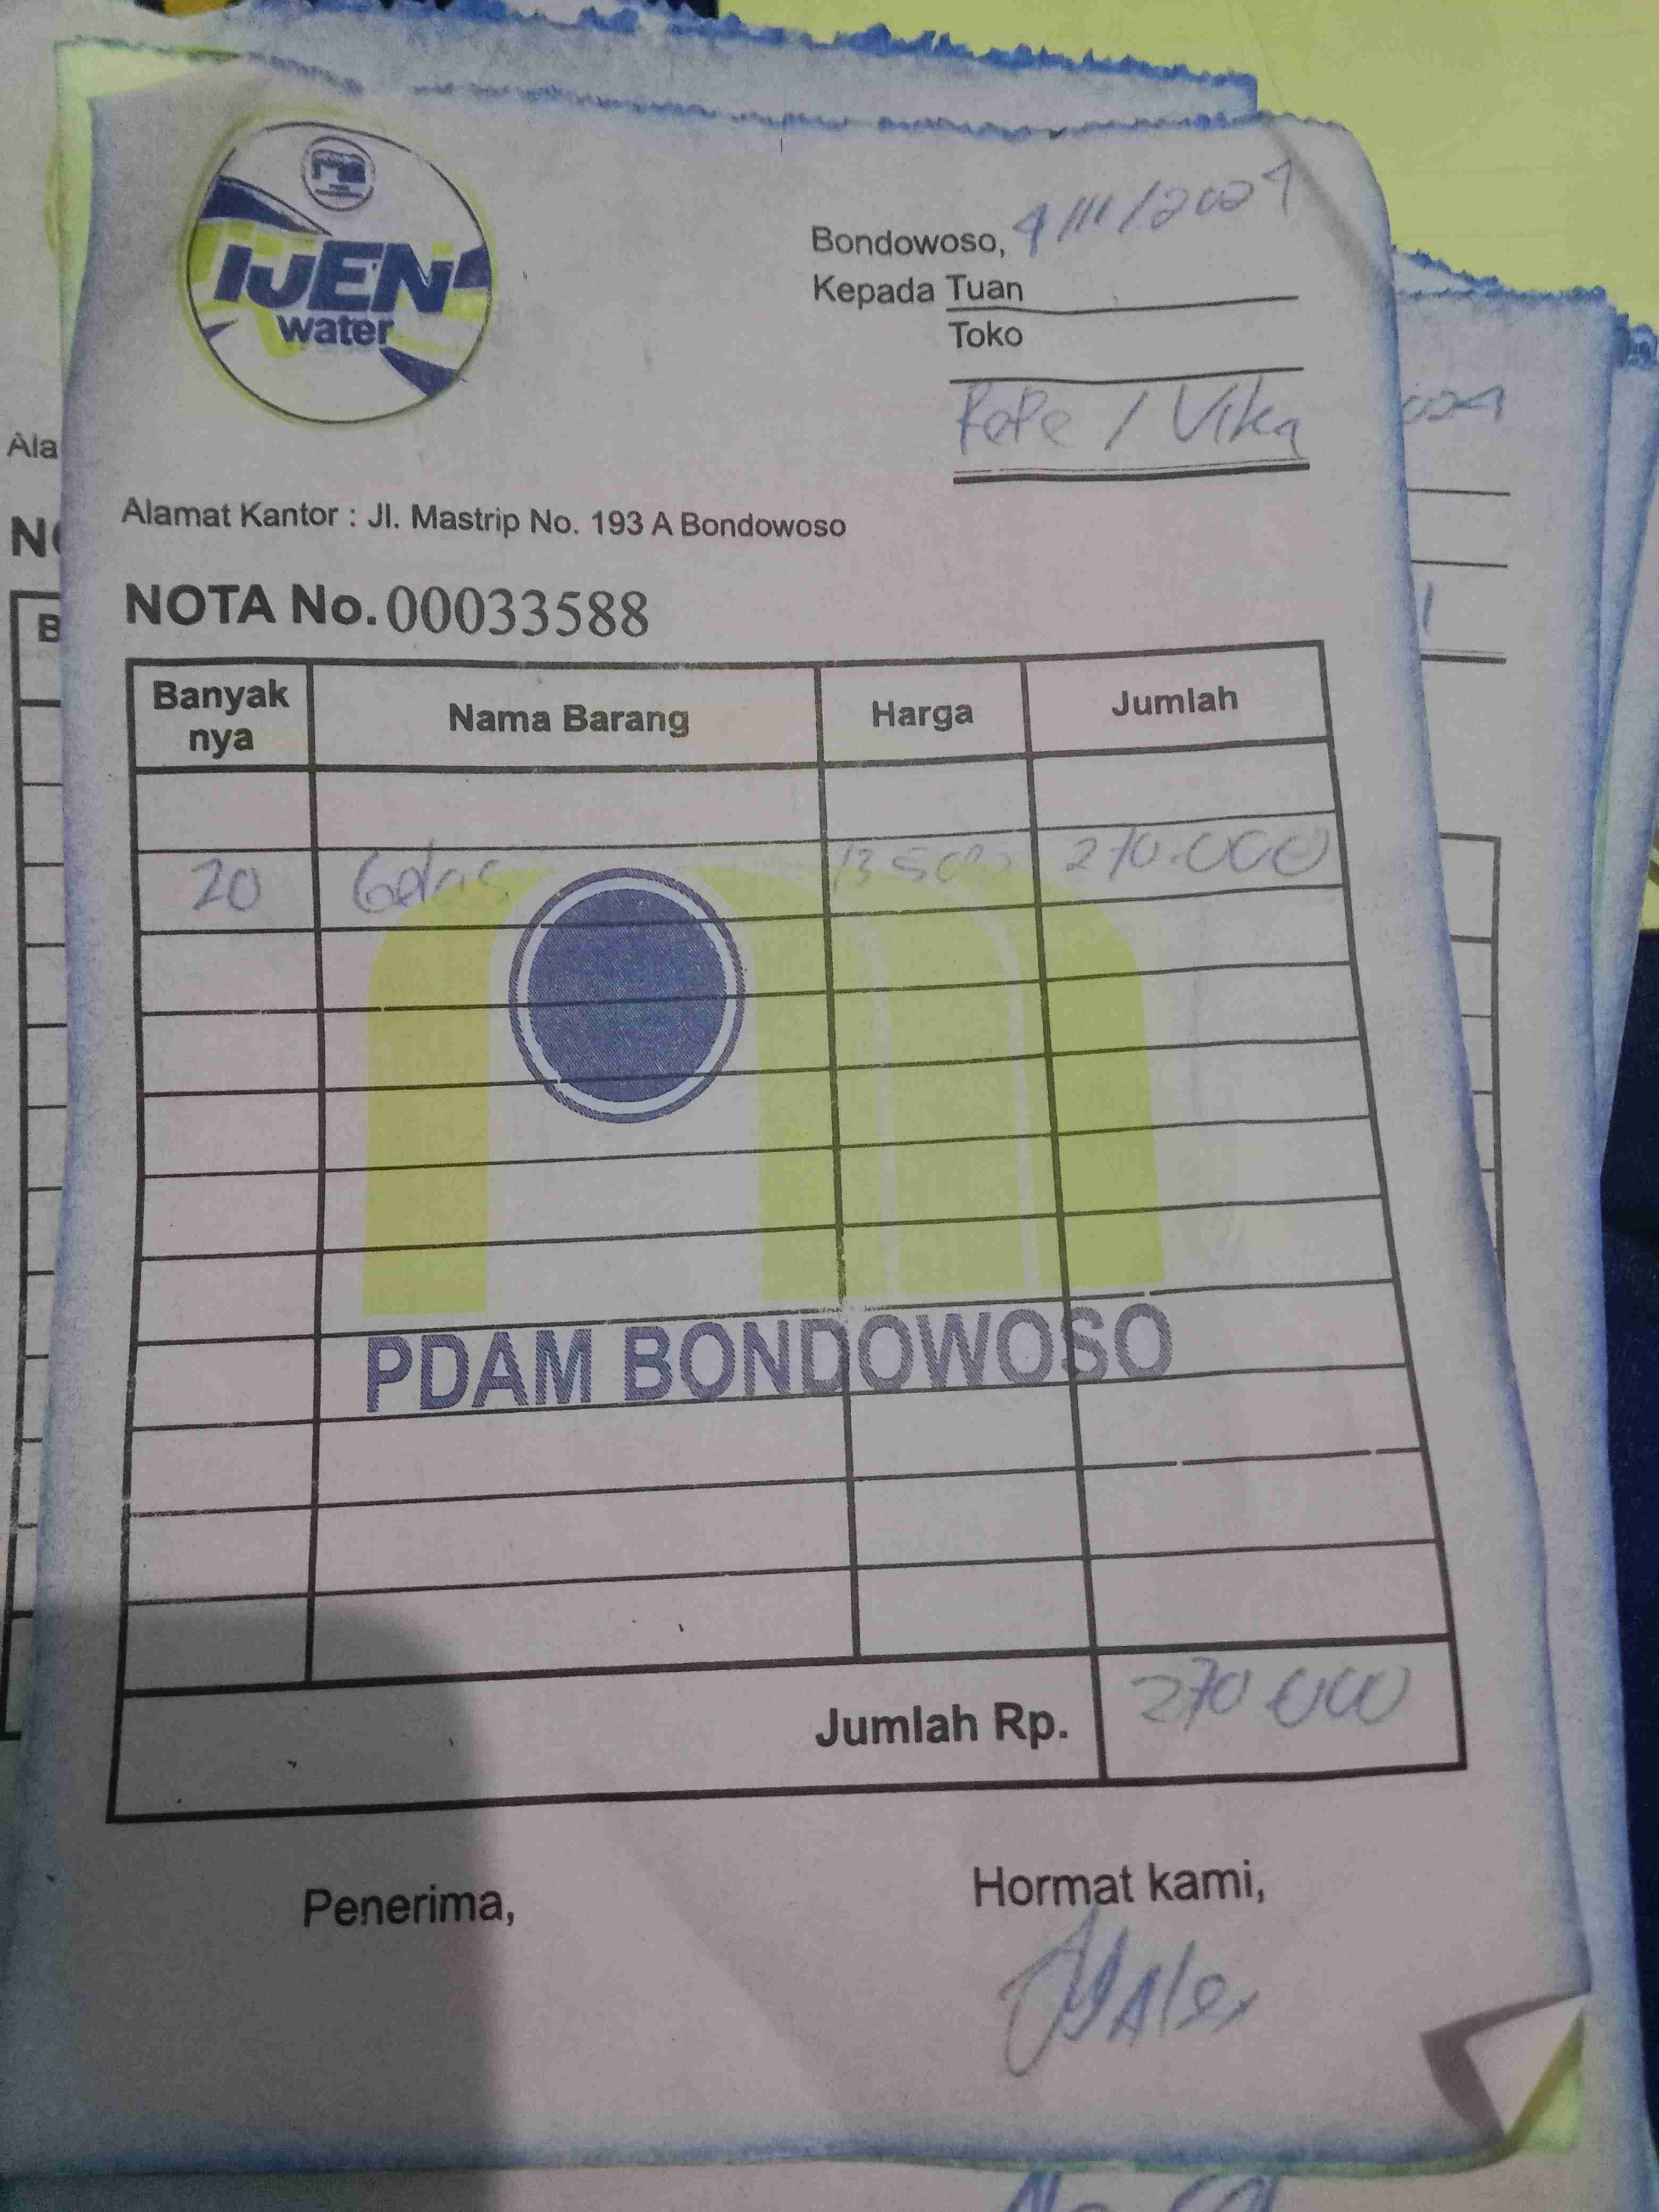 IJEN
water
Bondowoso, 4/III/2024
Kepada Tuan
Toko
PePe / Vika
Alamat Kantor : Jl. Mastrip No. 193 A Bondowoso
NOTA No. 00033588
Banyak nya Nama Barang Harga Jumlah
20 Gelas 13500 270.000
PDAM BONDOWOSO
Jumlah Rp. 270 000
Penerima, Hormat kami,
Alex
Ala